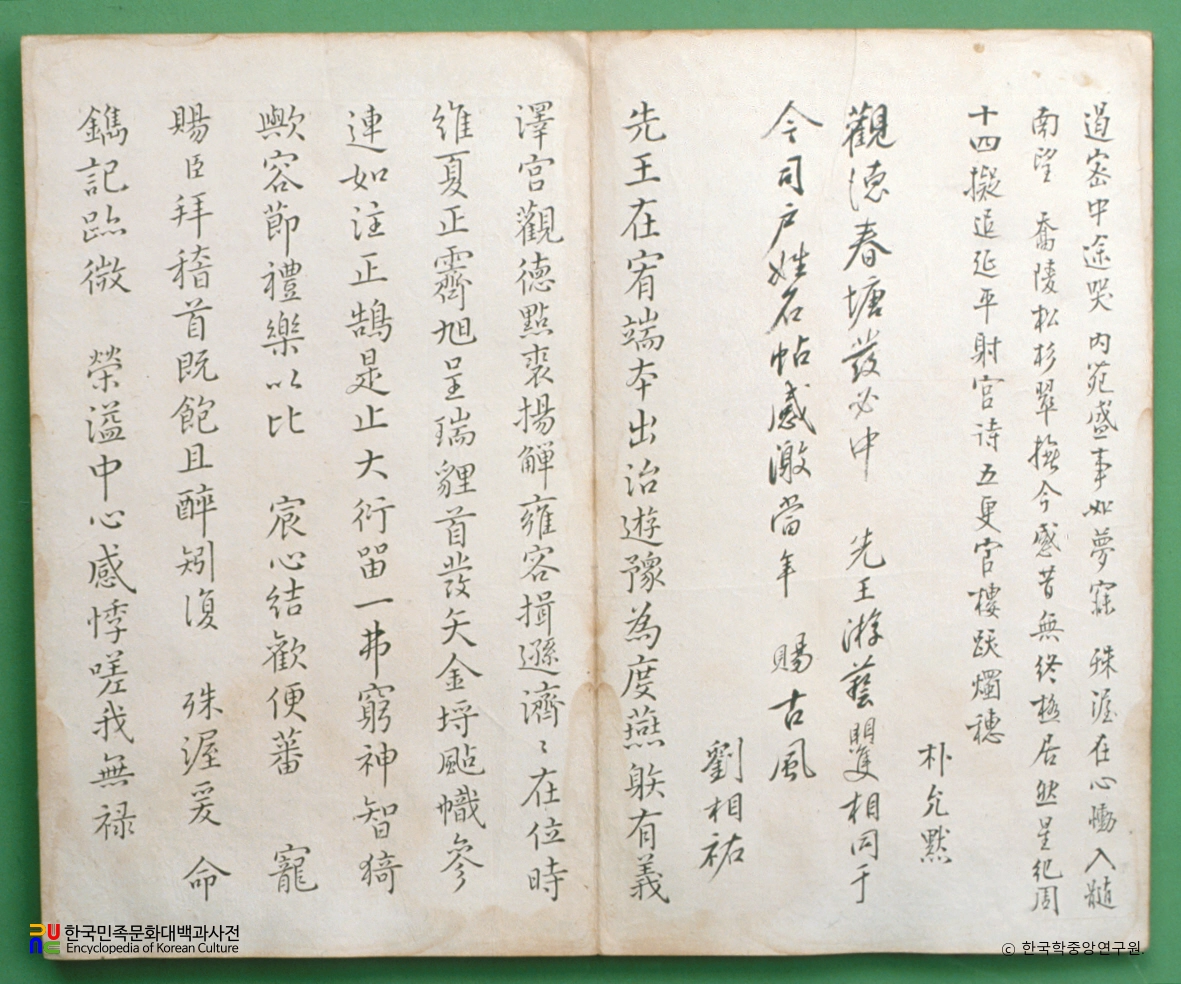 遏密中途哭 內苑盛事如夢寐 殊渥在心慟入髓
南望 喬陵松杉翠撫今感昔無終極居然星紀周
十四擬追延平射宮詩五更官樓跋燭穗
朴允默
觀德春塘發必中 先王游藝矍相同于
今司戶姓名帖感激當年 賜古風
劉相祐
先王在宥端本出治遊豫為度燕躲有義
澤宮觀德點裘揚觶雍容揖遜濟〻在位時
維夏正霽旭呈瑞貍首發矢金埒颭幟參
連如注正鵠是止大衍留一弗窮神智猗
歟容節禮樂以比 宸心結歡便蕃 寵
賜臣拜稽首既飽且醉矧復 殊渥爰 命
鐫記 微 榮溢中心感悸嗟我無祿
한국민족문화대백과사전
Encyclopedia of Korean Culture
ⓒ 한국학중앙연구원.